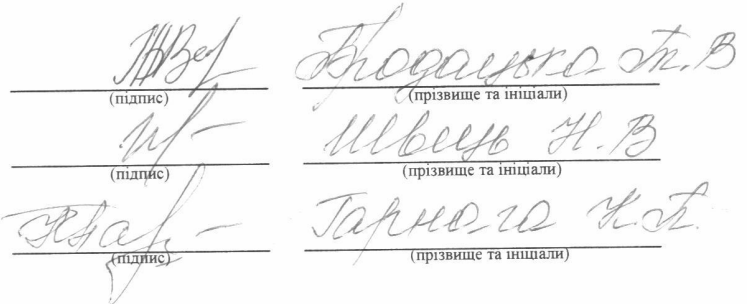 Бродацька Т. В
(підпис) (прізвище та ініціали)
Швець Н. В
(підпис) (прізвище та ініціали)
Гарнага Н. П.
(підпис) (прізвище та ініціали)